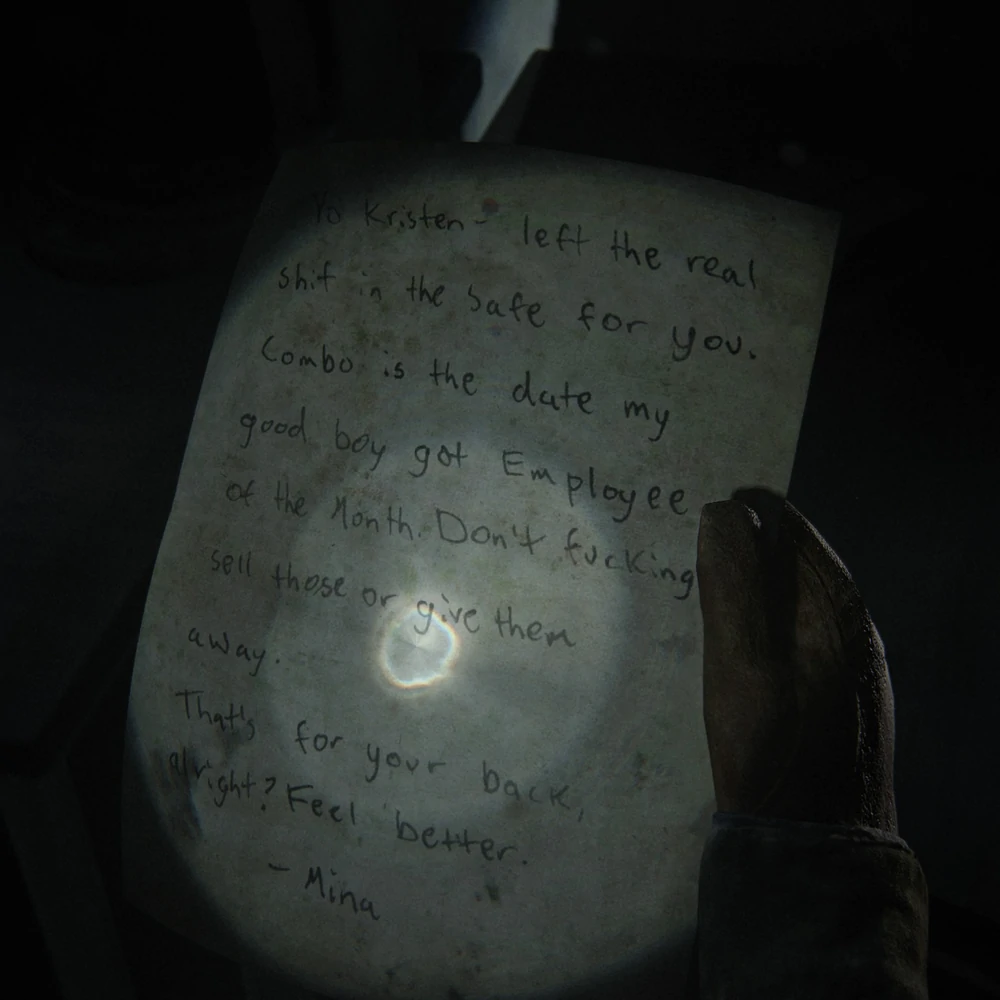 Yo Kristen - left the real
shit in the safe for you.
Combo is the date my
good boy got Employee
of the Month. Don't fucking
sell those or give them
away.
That's for your back,
alright? Feel better.
- Mina